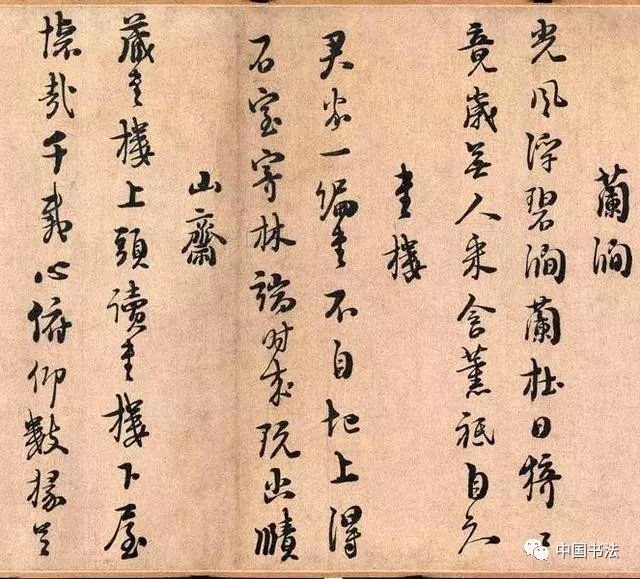 蘭澗
光風浮碧澗蘭杜日猗〻
竟歲無人采含薰祗自知
書樓
君家一編書不自圯上得
石室寄林端時來玩幽賾
山齋
藏書樓上頭讀書樓下屋
懷哉千載心俯仰數椽足
中国书法